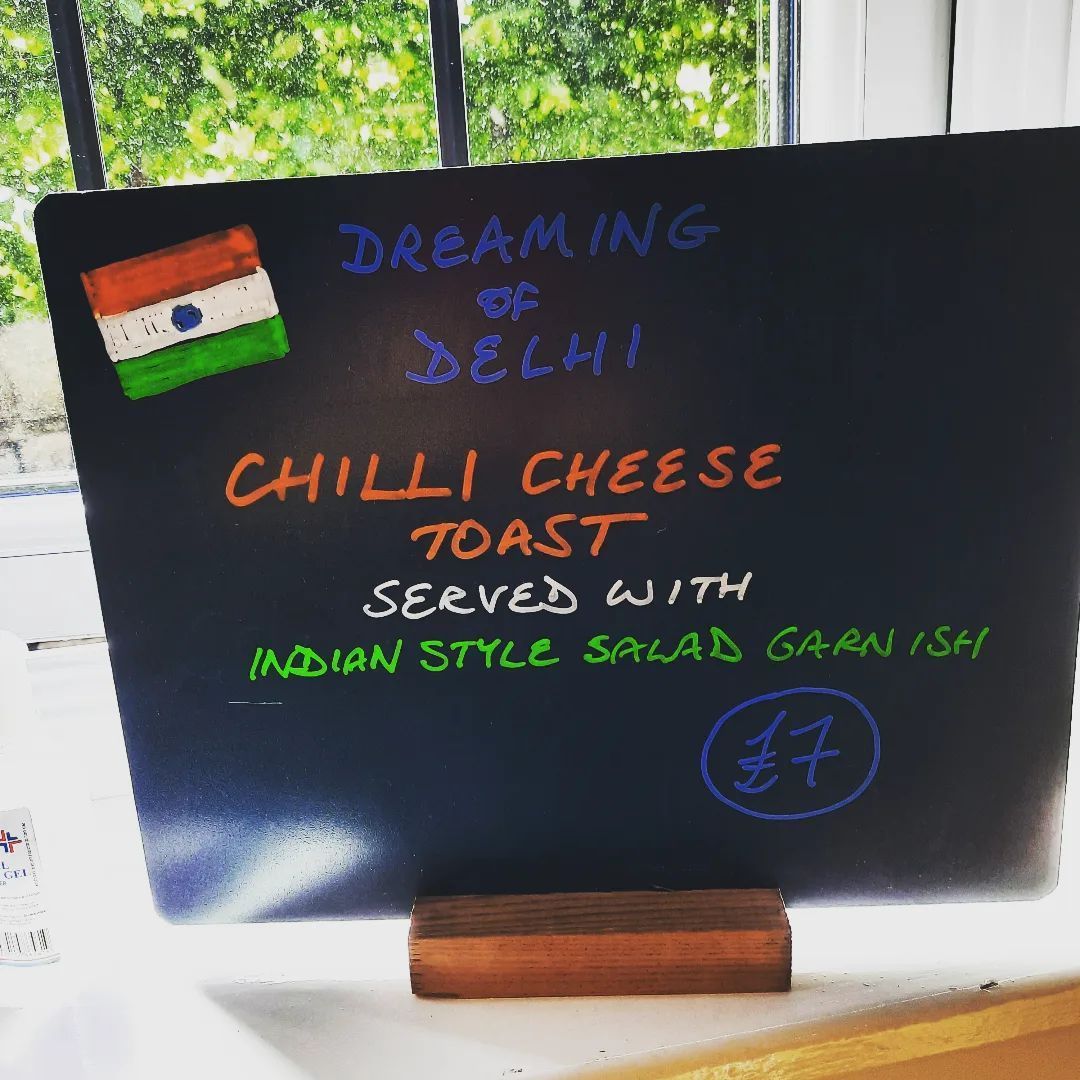 DREAMING
OF
DELHI
CHILLI CHEESE
TOAST
SERVED WITH
INDIAN STYLE SALAD GARNISH
£7
L
GEL